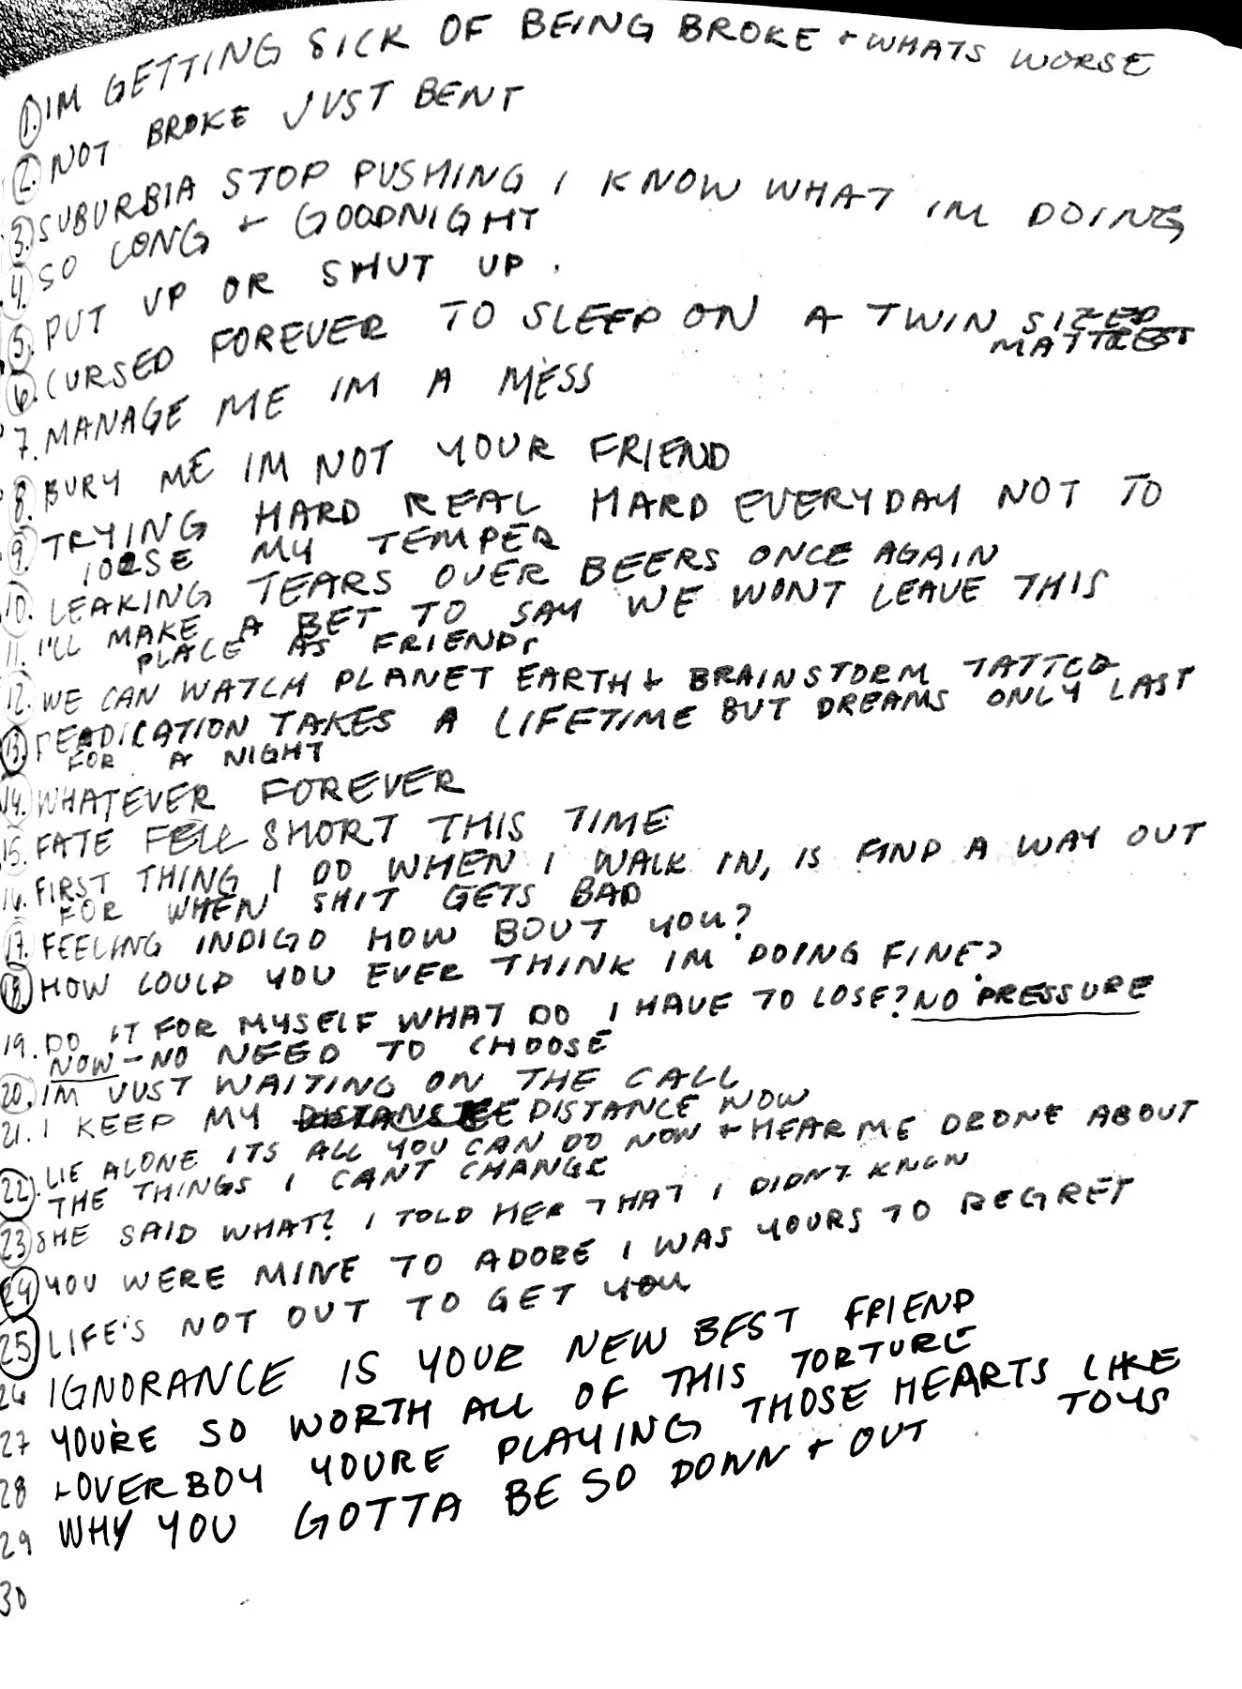 1. IM GETTING SICK OF BEING BROKE + WHATS WORSE
2. NOT BROKE JUST BENT
3. SUBURBIA STOP PUSHING I KNOW WHAT IM DOING
4. SO LONG + GOODNIGHT
5. PUT UP OR SHUT UP.
6. CURSED FOREVER TO SLEEP ON A TWIN SIZED
MATTRESS
7. MANAGE ME IM A MESS
8. BURY ME IM NOT YOUR FRIEND
9. TRYING HARD REAL HARD EVERYDAY NOT TO
LOOSE MY TEMPER
10. LEAKING TEARS OVER BEERS ONCE AGAIN
11. I'LL MAKE A BET TO SAY WE WONT LEAVE THIS
PLACE AS FRIENDS
12. WE CAN WATCH PLANET EARTH + BRAINSTORM TATTOO
13. DEADICATION TAKES A LIFETIME BUT DREAMS ONLY LAST
FOR A NIGHT
14. WHATEVER FOREVER
15. FATE FELL SHORT THIS TIME
16. FIRST THING I DO WHEN I WALK IN, IS FIND A WAY OUT
FOR WHEN SHIT GETS BAD
17. FEELING INDIGO HOW BOUT YOU?
18. HOW COULD YOU EVER THINK IM DOING FINE?
19. DO IT FOR MYSELF WHAT DO I HAVE TO LOSE? NO PRESSURE
NOW - NO NEED TO CHOOSE
20. IM JUST WAITING ON THE CALL
21. I KEEP MY DISTANCE NOW
22. LIE ALONE ITS ALL YOU CAN DO NOW + HEAR ME DRONE ABOUT
THE THINGS I CANT CHANGE
23. SHE SAID WHAT? I TOLD HER THAT I DIDN'T KNOW
24. YOU WERE MINE TO ADORE I WAS YOURS TO REGRET
25. LIFE'S NOT OUT TO GET YOU
26 IGNORANCE IS YOUR NEW BEST FRIEND
27 YOU'RE SO WORTH ALL OF THIS TORTURE
28 LOVER BOY YOURE PLAYING THOSE HEARTS LIKE
TOYS
29 WHY YOU GOTTA BE SO DOWN + OUT
30